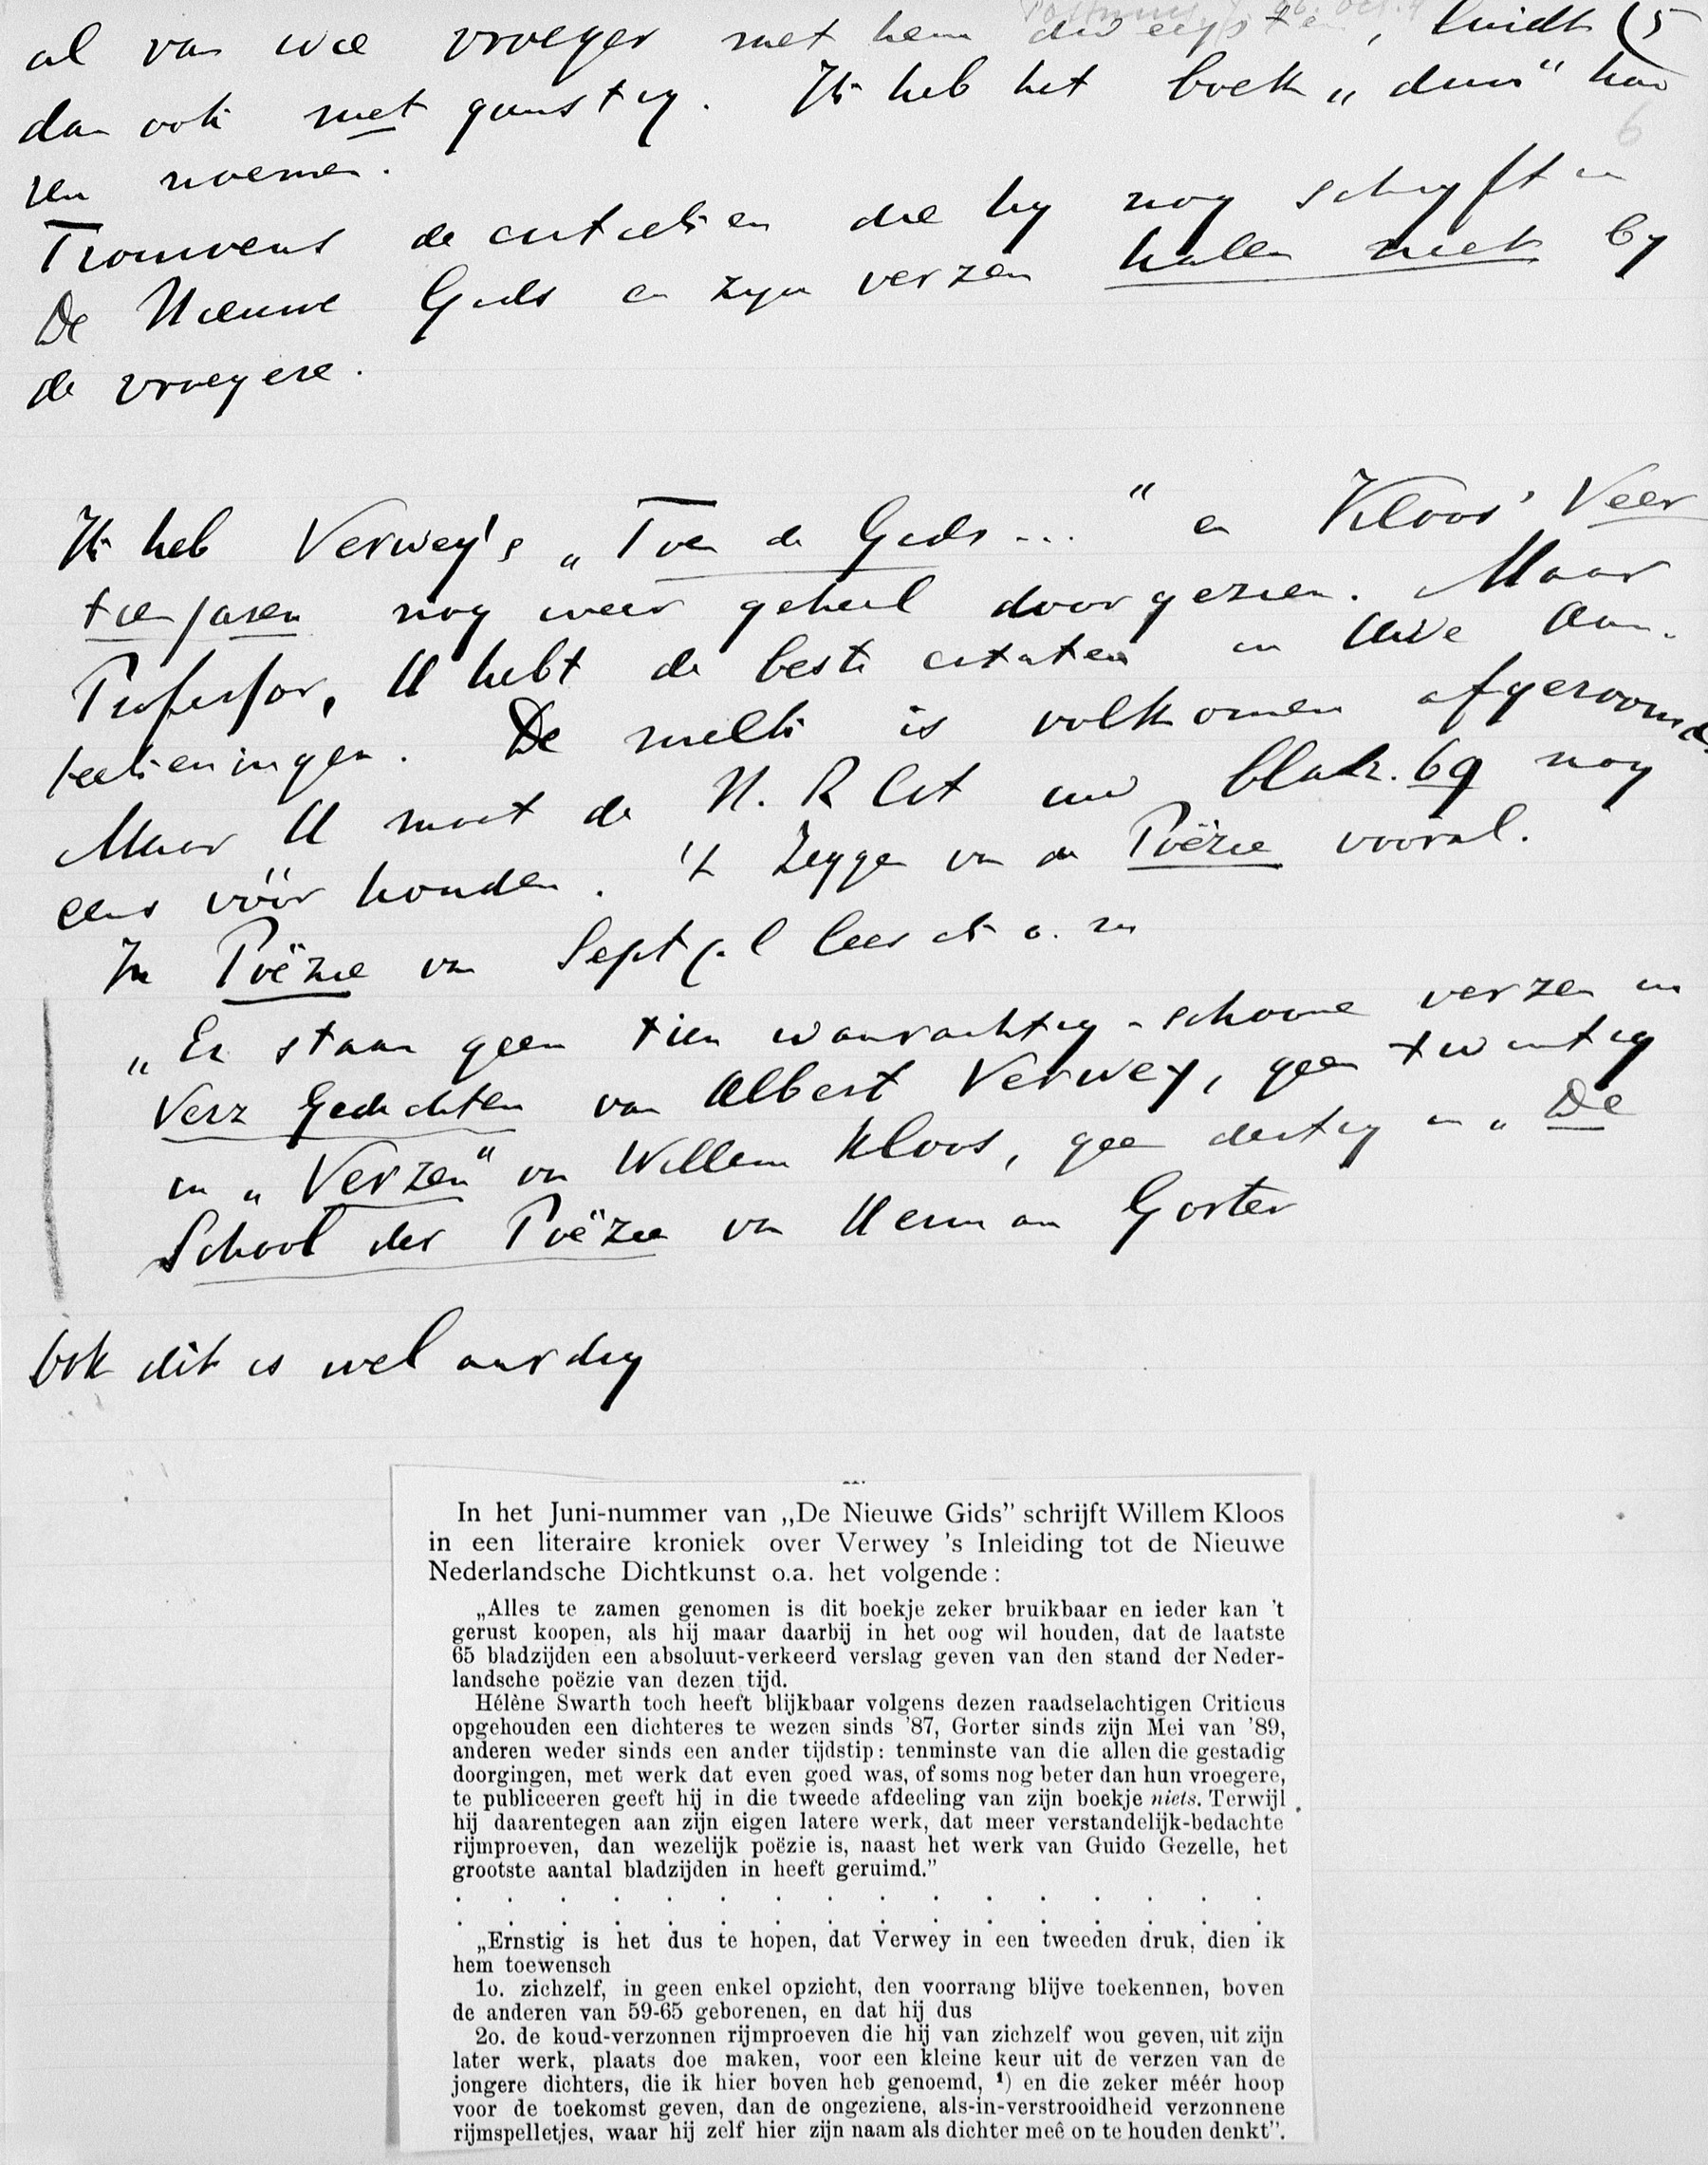 al van wie vroeger met hem dweepte, luidt (5
dan ook niet gunstig. Ik heb het boek „duur" hoo
ren noemen. 6
Trouwens de artikelen die hij nog schrijft in
De Nieuwe Gids en zijn verzen halen niet bij
de vroegere.
Ik heb Verwey's „Toen de Gids..." en Kloos' Veer
tien jaren nog weer geheel doorgezien. Maar
Professor, U hebt de beste citaten in Uwe Aan-
teekeningen. De melk is volkomen afgeroomd.
Maar U moet de N. R Crt uw bladz. 69 nog
eens vóór houden. 't Zeggen van de Poëzie vooral.
In Poëzie van Sept j.l lees ik o. m
„Er staan geen tien waarachtig-schoone verzen in
Verz Gedichten van Albert Verwey, geen twintig
in „Verzen" van Willem Kloos, geen dertig in „De
School der Poëzie van Herman Gorter
Ook dit is wel aardig
In het Juni-nummer van „De Nieuwe Gids" schrijft Willem Kloos
in een literaire kroniek over Verwey 's Inleiding tot de Nieuwe
Nederlandsche Dichtkunst o.a. het volgende:
„Alles te zamen genomen is dit boekje zeker bruikbaar en ieder kan 't
gerust koopen, als hij maar daarbij in het oog wil houden, dat de laatste
65 bladzijden een absoluut-verkeerd verslag geven van den stand der Neder-
landsche poëzie van dezen tijd.
Hélène Swarth toch heeft blijkbaar volgens dezen raadselachtigen Criticus
opgehouden een dichteres te wezen sinds '87, Gorter sinds zijn Mei van '89,
anderen weder sinds een ander tijdstip: tenminste van die allen die gestadig
doorgingen, met werk dat even goed was, of soms nog beter dan hun vroegere,
te publiceeren geeft hij in die tweede afdeeling van zijn boekje niets. Terwijl
hij daarentegen aan zijn eigen latere werk, dat meer verstandelijk-bedachte
rijmproeven, dan wezelijk poëzie is, naast het werk van Guido Gezelle, het
grootste aantal bladzijden in heeft geruimd."
. . . . . . . . . . . . . . . .
. . . . . . . . . . . . . . . .
„Ernstig is het dus te hopen, dat Verwey in een tweeden druk, dien ik
hem toewensch
1o. zichzelf, in geen enkel opzicht, den voorrang blijve toekennen, boven
de anderen van 59-65 geborenen, en dat hij dus
2o. de koud-verzonnen rijmproeven die hij van zichzelf wou geven, uit zijn
later werk, plaats doe maken, voor een kleine keur uit de verzen van de
jongere dichters, die ik hier boven heb genoemd, ¹) en die zeker méér hoop
voor de toekomst geven, dan de ongeziene, als-in-verstrooidheid verzonnene
rijmspelletjes, waar hij zelf hier zijn naam als dichter meê op te houden denkt".